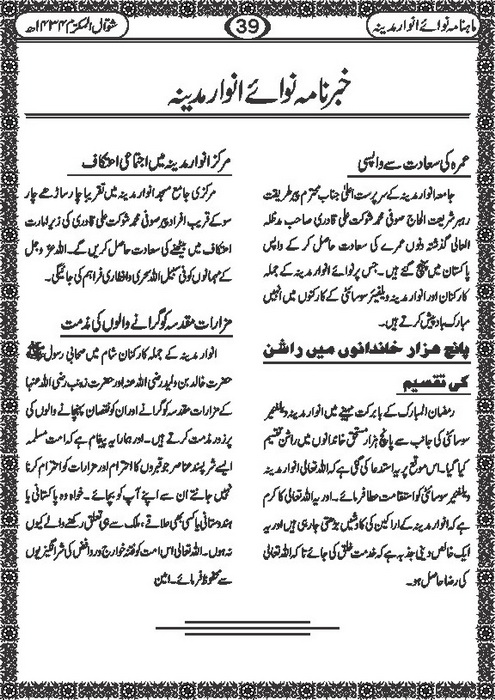 ماہنامہ نوائے انوار مدینہ
39
شوال المکرم ۱۴۳۴ھ
خبر نامہ نوائے انوار مدینہ
عمرہ کی سعادت سے واپسی
جامعہ انوار مدینہ کے سرپرست اعلیٰ جناب محترم پیر طریقت
رہبر شریعت الحاج صوفی محمد شوکت علی قادری صاحب مدظلہ
العالی گذشتہ دنوں عمرے کی سعادت حاصل کر کے واپس
پاکستان میں پہنچ گئے ہیں۔ جس پر نوائے انوار مدینہ کے جملہ
کارکنان اور انوار مدینہ ویلفیئر سوسائٹی کے کارکنوں میں انہیں
مبارک باد پیش کرتے ہیں۔
پانچ ہزار خاندانوں میں راشن
کی تقسیم
رمضان المبارک کے بابرکت مہینے میں انوار مدینہ ویلفیئر
سوسائٹی کی جانب سے پانچ ہزار مستحق خاندانوں میں راشن تقسیم
کیا گیا۔ اس موقع پر یہ استدعا کی گئی ہے کہ اللہ تعالیٰ انوار مدینہ
ویلفیئر سوسائٹی کو استقامت عطا فرمائے۔ اور یہ اللہ تعالیٰ کا کرم
ہے کہ انوار مدینہ کے اراکین کی کاوشیں بڑھتی جا رہی ہیں اور یہ
ایک خالص دینی جذبہ ہے کہ خدمت خلق کی جائے تاکہ اللہ تعالیٰ
کی رضا حاصل ہو۔
مرکز انوار مدینہ میں اجتماعی اعتکاف
مرکزی جامع مسجد انوار مدینہ میں تقریبا چار ساڑھے چار
سو کے قریب افراد پیر صوفی محمد شوکت علی قادری کی زیر امارت
اعتکاف میں بیٹھنے کی سعادت حاصل کریں گے۔ اللہ عز وجل
کے مہمانوں کو فی سبیل اللہ سحری وافطاری فراہم کی جائیگی۔
مزارات مقدسہ کو گرانے والوں کی مذمت
انوار مدینہ کے جملہ کارکنان شام میں صحابی رسول ﷺ
حضرت خالد بن ولید رضی اللہ عنہ اور حضرت زینب رضی اللہ عنہا
کے مزارات مقدسہ کو گرانے اور ان کو نقصان پہنچانے والوں کی
پر زور مذمت کرتے ہیں۔ اور ہمارا یہ پیغام ہے کہ امت مسلمہ
ایسے شر پسند عناصر جو قبروں کا احترام اور مزارات کو احترام کرنا
نہیں جانتے ان سے اپنے آپ کو بچائے۔ خواہ وہ پاکستانی یا
ہندوستانی یا کسی بھی علاقے، ملک سے ہی تعلق رکھنے والے کیوں
نہ ہوں۔ اللہ تعالیٰ اس امت کو فتنہ خوارج و روافض کی شر انگیزیوں
سے محفوظ فرمائے۔ امین